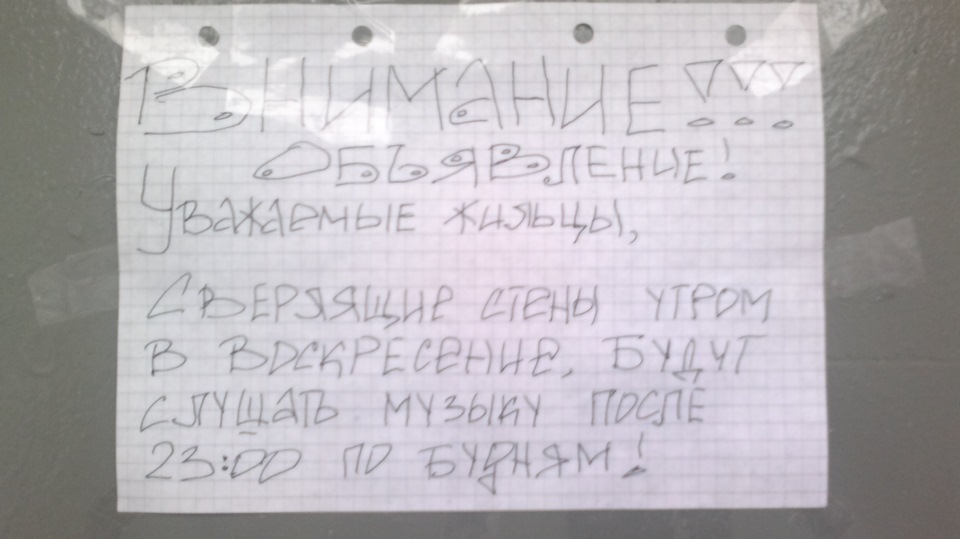 ВНИМАНИЕ!!!
ОБЪЯВЛЕНИЕ!
Уважаемые жильцы,
СВЕРЛЯЩИЕ СТЕНЫ УТРОМ
В ВОСКРЕСЕНИЕ, БУДУТ
СЛУШАТЬ МУЗЫКУ ПОСЛЕ
23:00 ПО БУДНЯМ!